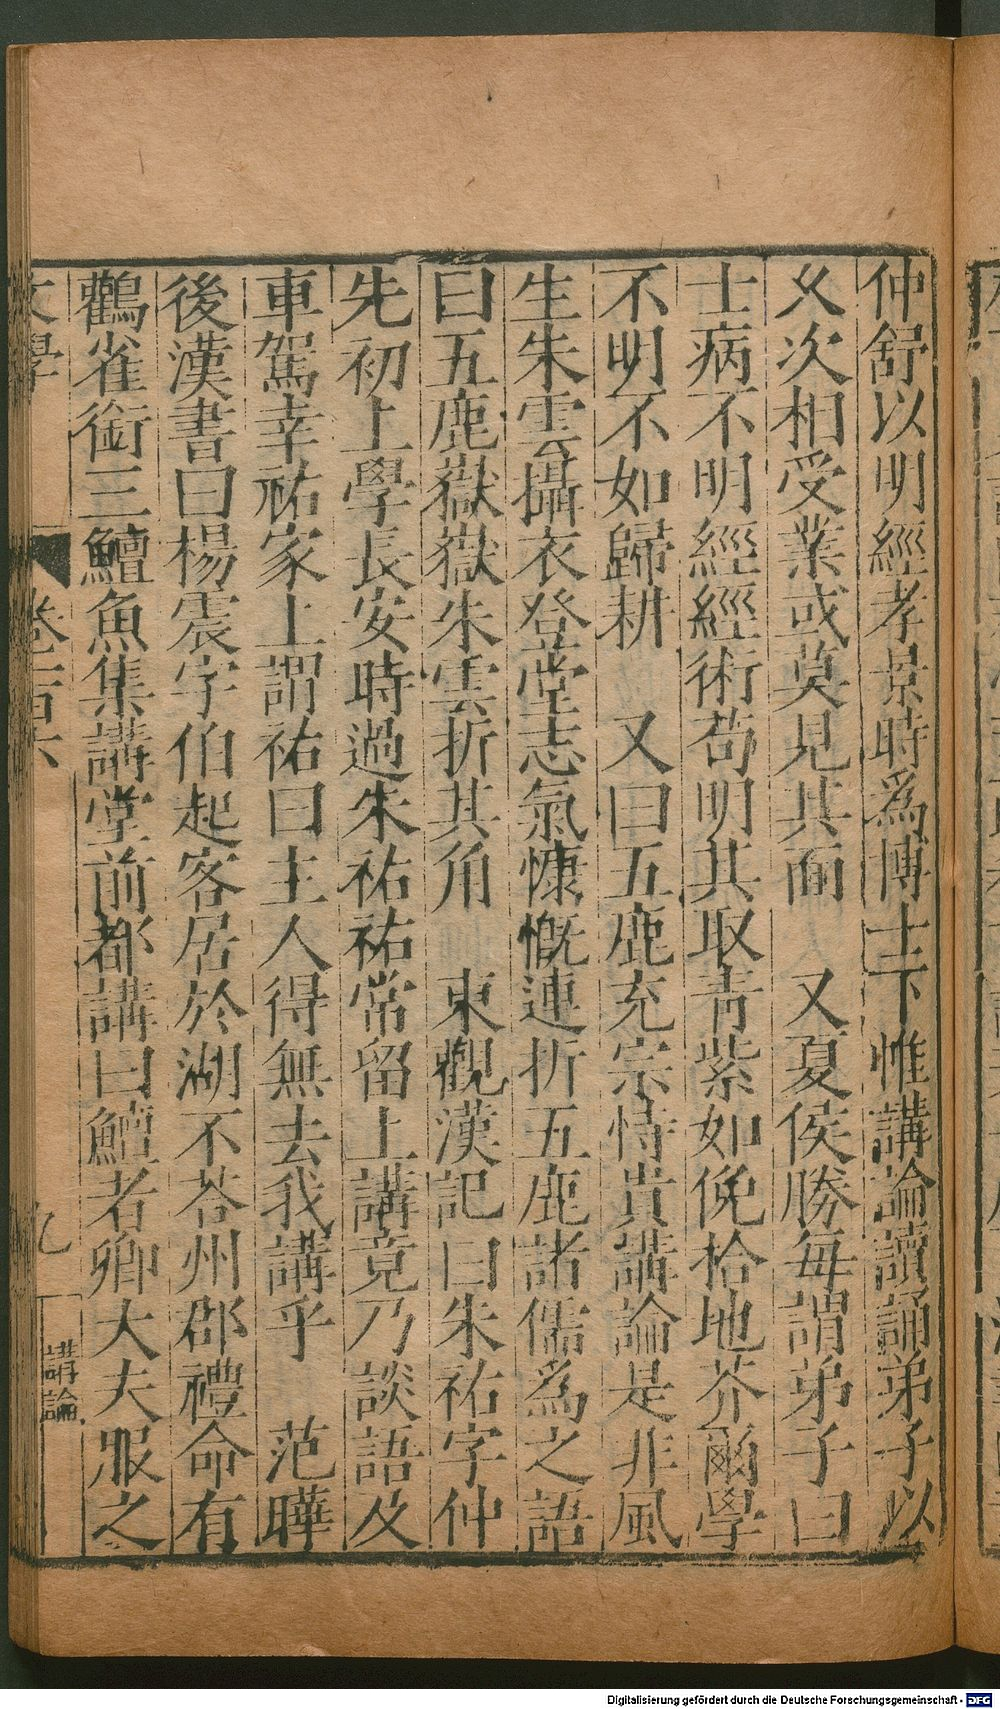 仲舒以明經孝景時爲博士下惟講論讀誦弟子以
乆次相受業或莫見其面　又夏侯勝每謂弟子曰
士病不明經經術苟明其取青紫如俛拾地芥爾學
不明不如歸耕　又曰五鹿充宗恃貴講論是非風
生朱雲攝衣登堂志氣慷慨連折五鹿諸儒爲之語
曰五鹿嶽嶽朱雲折其角　東觀漢記曰朱祐字仲
先初上學長安時過朱祐祐常留上講竟乃談語及
車駕幸祐家上謂祐曰主人得無去我講乎　范曄
後漢書曰楊震字伯起客居於湖不荅州郡禮命有
鸛雀銜三鱣魚集講堂前都講曰鱣者卿大夫服之
文學
卷二百六
九
講論
Digitalisierung gefördert durch die Deutsche Forschungsgemeinschaft - DFG